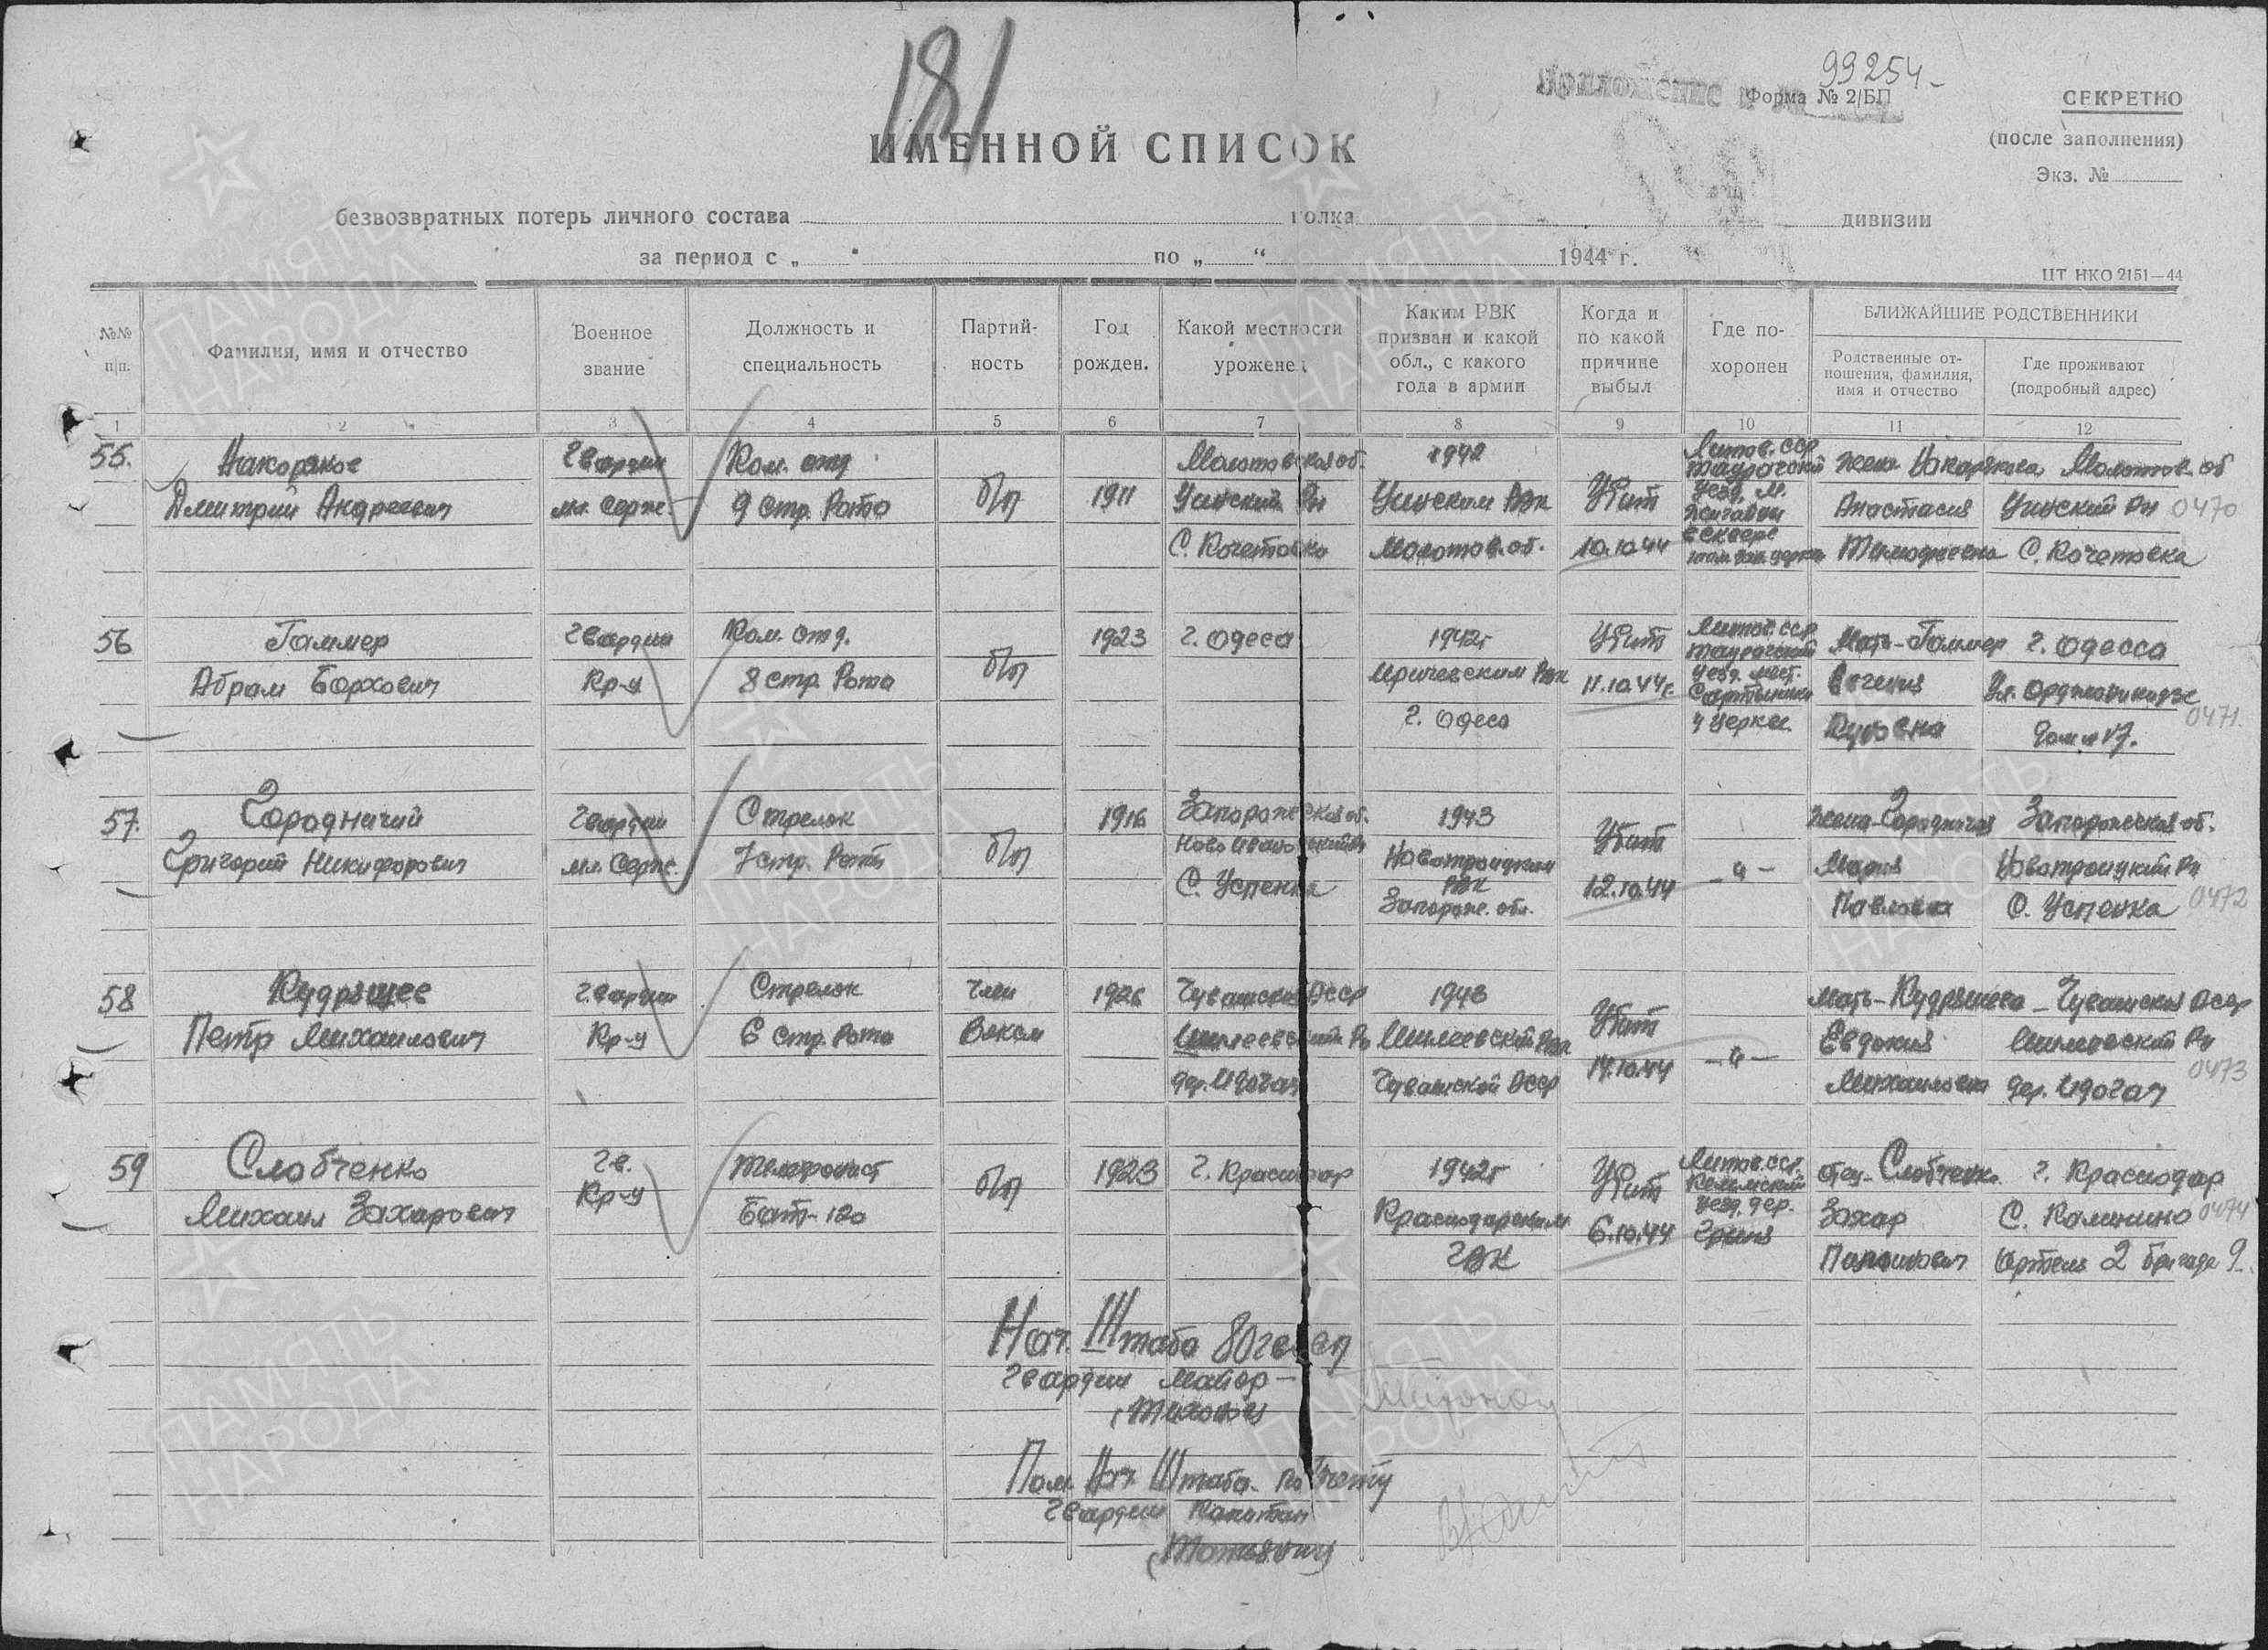 181
99254-
Форма № 2/БП
СЕКРЕТНО
(после заполнения)
Экз. №
ИМЕННОЙ СПИСОК
безвозвратных потерь личного состава полка дивизии
за период с „ “ по „ “ 1944 г.
ЦТ НКО 2151—44
№№ п/п.
Фамилия, имя и отчество
Военное звание
Должность и специальность
Партийность
Год рожден.
Какой местности уроженец
Каким РВК призван и какой обл., с какого года в армии
Когда и по какой причине выбыл
Где похоронен
БЛИЖАЙШИЕ РОДСТВЕННИКИ
Родственные отношения, фамилия, имя и отчество
Где проживают (подробный адрес)
1 2 3 4 5 6 7 8 9 10 11 12
55. Гвардии Ком. отд. Молотовская об. 1942 Литов. ССР Молотов. об
Дмитрий Андреевич мл. серж. 9 стр. Рота б/п 1911 Уинский Рн Уинским РВК Убит уезд. м. Анастасия Уинский Рн 0470
С. Кочетовка Молотов. об. 10.10.44 в сквере Тимофеевна С. Кочетовка
56 Гаммер Гвардии Ком. отд. 1923 г. Одеса 1942г Убит Литов. ССР Мать-Гаммер г. Одесса
Абрам Борхович Кр-ц 8 стр. Рота б/п РВК 11.10.44г. уезд. мест. Евгения Ул. Орджоникидзе
г. Одеса у церкви дом № 17. 0471
57. Городничий Гвардии Стрелок 1916 Запорожская об. 1943 Жена-Городничая Запорожская об.
Григорий Никифорович мл. Серж. 7 стр. Рота б/п Новотроицким РВК Убит Мария Новотроицкий Рн
С. Успенка Запорож. обл. 12.10.44 -"- Павловна С. Успенка 0472
58 Кудряшев Гвардии Стрелок Член 1926 Чувашская АССР 1943 Убит Мать-Кудряшева Чувашская АССР
Петр Михаилович Кр-ц 6 стр. Рота Влксм РВК -"- Евдокия Рн
дер. Чувашской АССР 14.10.44 Михаиловна дер. 0473
59 Слобченко Гв. Телефонист б/п 1923 г. Краснодар 1942г Убит Литов. ССР. Отец-Слобченко г. Краснодар
Михаил Захарович Кр-ц Бат-120 Краснодарским уезд. дер. Захар С. Калинино 0474
ГВК 6.10.44 Артель 2 бригада 9.
Нач. Штаба 80 гв. сп
Гвардии Майор -
Пом. Нач. Штаба по учету
Гвардии Капитан
ПАМЯТЬ НАРОДА